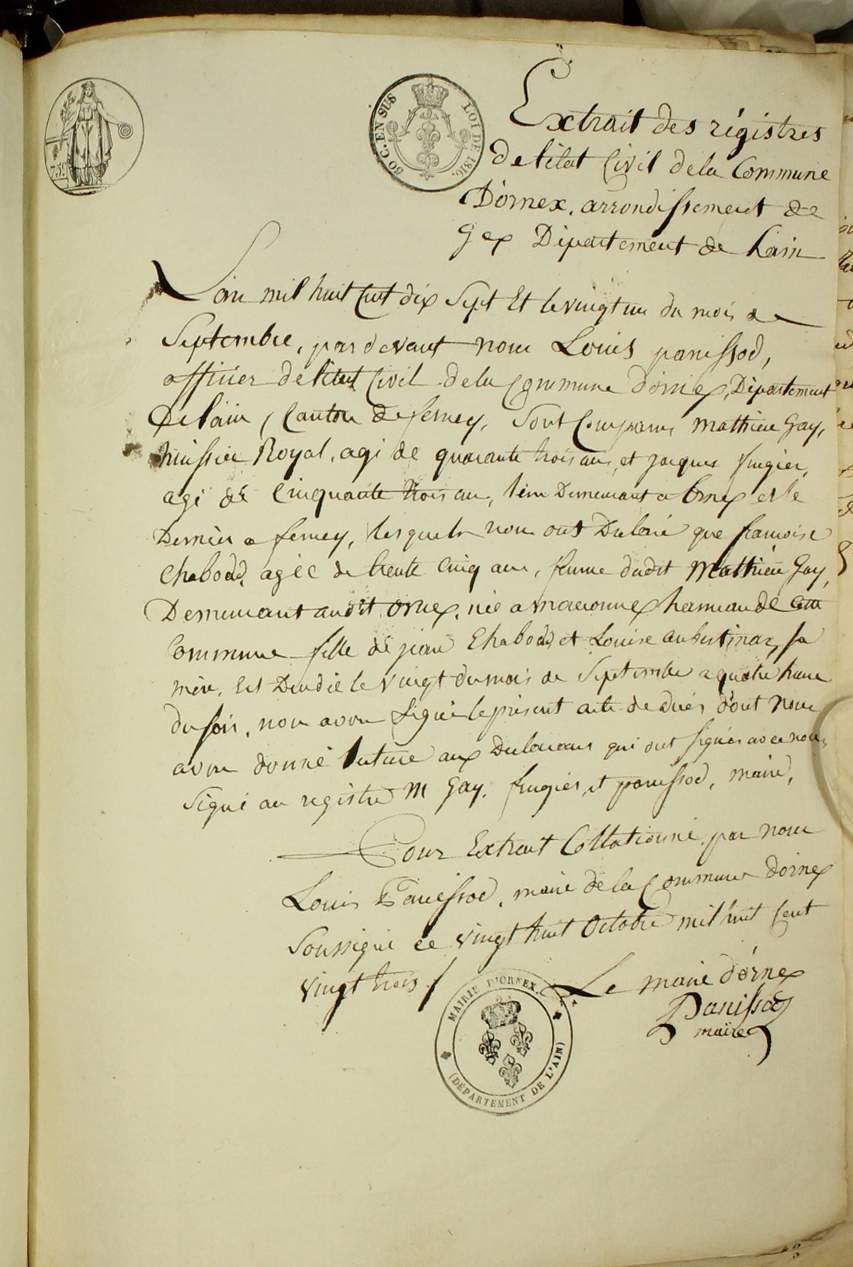 75c
50 C. EN SUS LOI DE 1816.
Extrait des régistres
de l'état Civil de la Commune
D'ornex, arrondissement de
Gex Département de Lain
L'an mil huit Cent dix Sept Et le vingt un du mois de
Septembre, par devant nous Louis panissod,
officier de l'état Civil de la Commune d'ornex, Département
de l'ain, Canton de ferney, Sont Comparus Mathieu Gay,
huissier Royal, agé de quarante trois ans, et jacques
agé de Cinquante trois ans, 1er Demeurant a Ornex et le
Dernier a ferney, lesquels nous ont Déclaré que francoise
Chabod, agée de trente Cinq ans, femme dudit Mathieu Gay,
Demeurant audit ornex, née a maconnex hameau de cette
Commune fille de jean Chabod et Louise sa
mère, Est Décédée le vingt du mois de Septembre a quatre heure
du soir, nous avons Signé le présent acte de décès dont nous
avons donné lecture aux Declarans qui ont signés avec nous,
Signé au registre M Gay. et panissod, maire,
Pour Extrait Collationné par nous
Louis Panissod, maire de la Commune dornex
Soussigné ce vingt huit Octobre mil huit Cent
vingt trois
Le maire d'ornex
Panissod
maire
MAIRIE D'ORNEX.
(DÉPARTEMENT DE L'AIN)